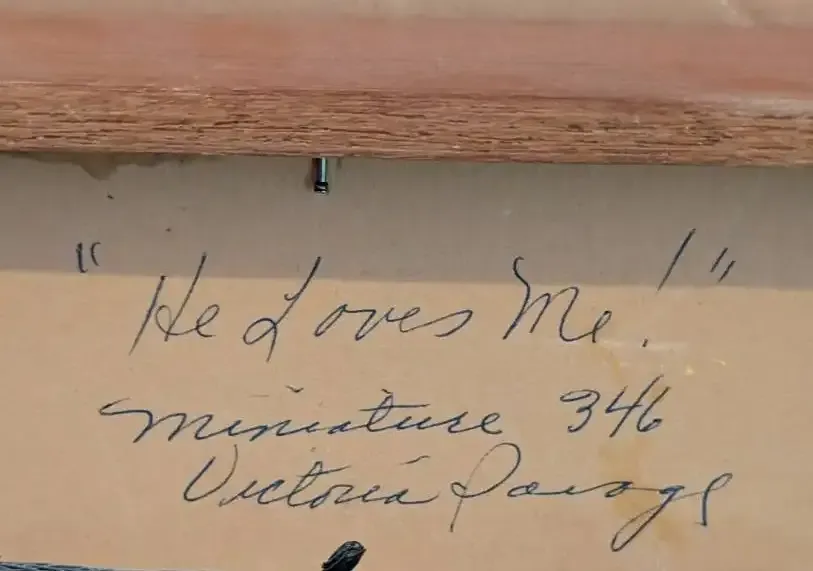 "He Loves Me!"
Miniature 346
Victoria